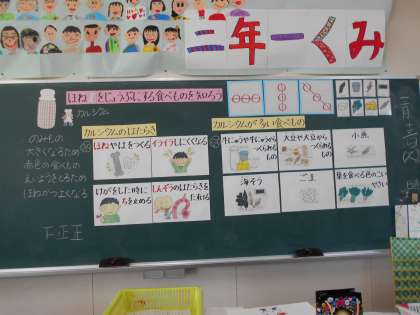 三年一くみ
ほねをじょうぶにする食べものを知ろう
カルシウム
のみもの
大きくなるため
赤色の食べもの
えいようをとるため
ほねがつよくなる
カルシウムのはたらき
ほねやはをつくる
イライラしにくくなる
けがをした時に
ちを止める
しんぞうのはたらきを
たすける
カルシウムが多い食べもの
牛にゅうや牛にゅうから
つくられるもの
大豆や大豆から
つくられるもの
小魚
海そう
ごま
葉を食べる色のこい
やさい